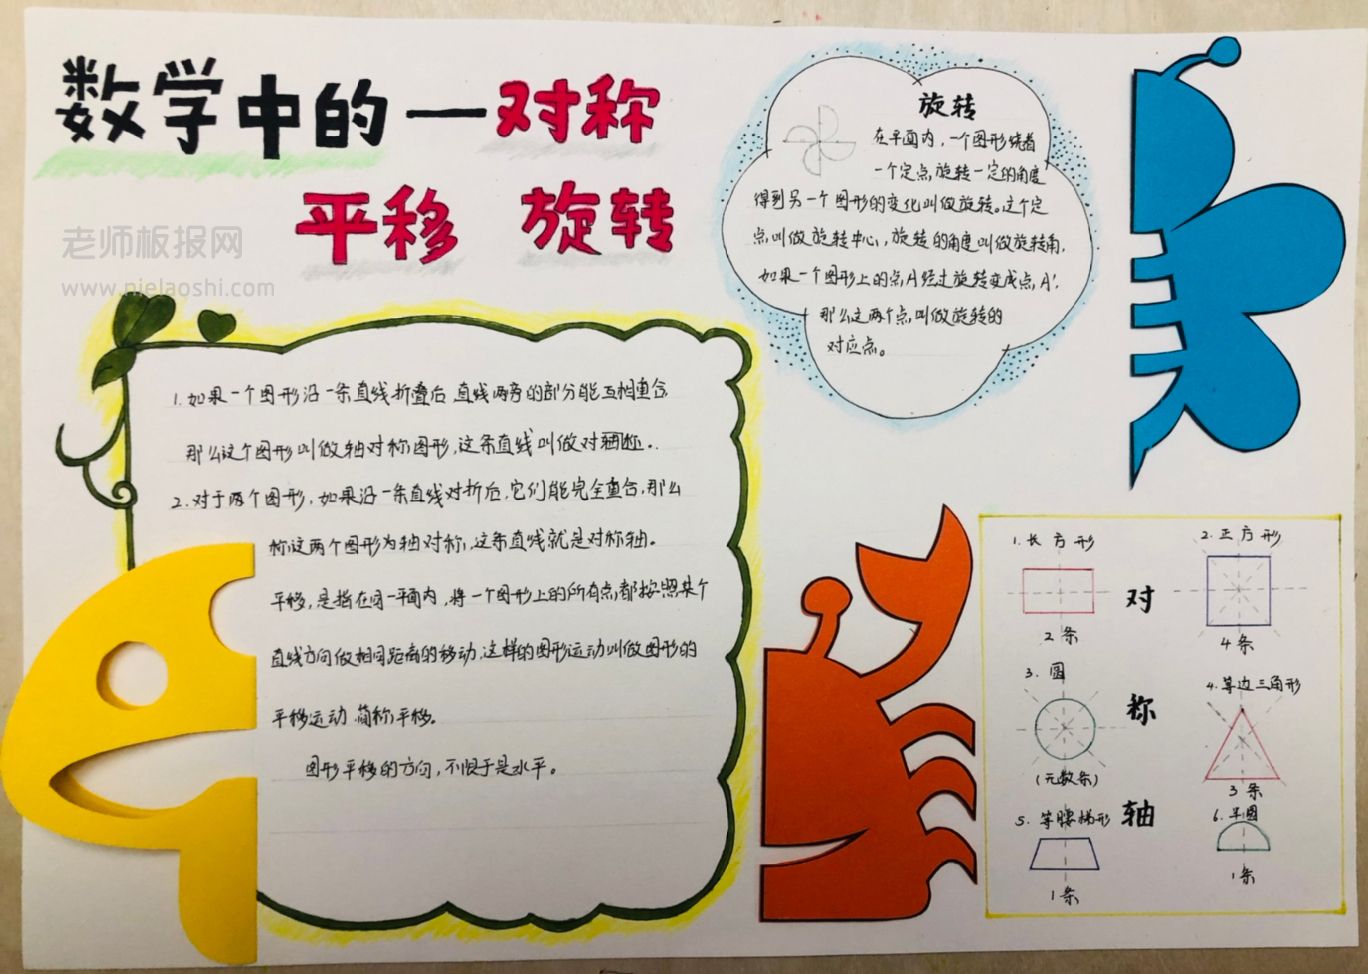 数学中的一对称
平移 旋转
老师板报网
www.nielaoshi.com
旋转
在平面内，一个图形绕着
一个定点旋转一定的角度
得到另一个图形的变化叫做旋转。这个定
点叫做旋转中心，旋转的角度叫做旋转角，
如果一个图形上的点A经过旋转变成点A'，
那么这两个点叫做旋转的
对应点。
1.如果一个图形沿一条直线折叠后直线两旁的部分能互相重合
那么这个图形叫做轴对称图形，这条直线叫做对称轴。
2.对于两个图形，如果沿一条直线对折后，它们能完全重合，那么
称这两个图形为轴对称，这条直线就是对称轴。
平移，是指在同一平面内，将一个图形上的所有点都按照某个
直线方向做相同距离的移动，这样的图形运动叫做图形的
平移运动 简称平移。
图形平移的方向，不限于是水平。
对称轴
1.长方形
2条
2.正方形
4条
3.圆
(无数条)
4.等边三角形
3条
5.等腰梯形
1条
6.半圆
1条